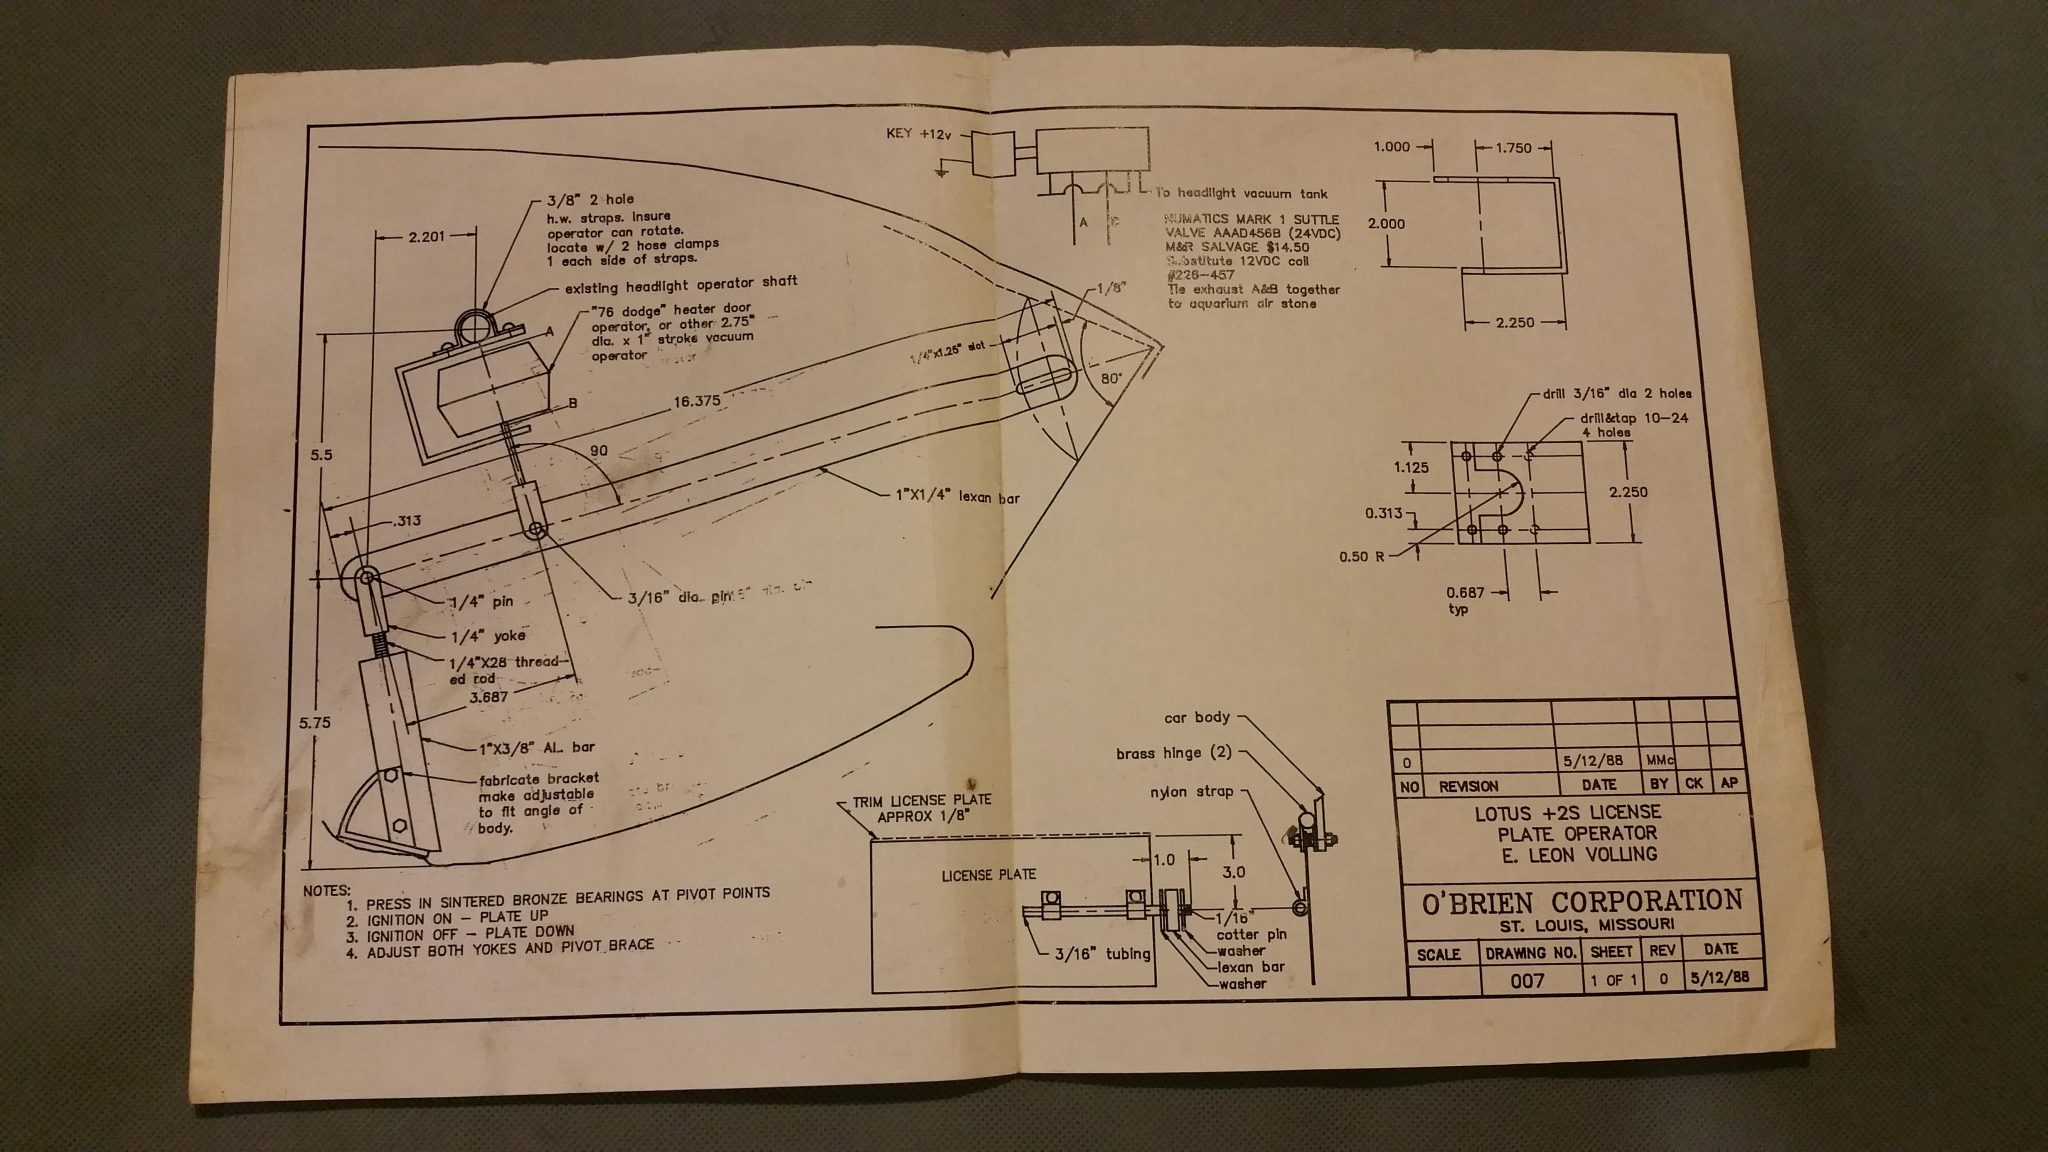 KEY +12v
To headlight vacuum tank
A
NUMATICS MARK 1 SUTTLE
VALVE AAAD456B (24VDC)
M&R SALVAGE $14.50
Substitute 12VDC coil
#226-457
Tie exhaust A&B together
to aquarium air stone
1.000
1.750
2.000
2.250
3/8" 2 hole
h.w. straps. Insure
operator can rotate.
locate w/ 2 hose clamps
1 each side of straps.
2.201
existing headlight operator shaft
"76 dodge" heater door
operator, or other 2.75"
dia. x 1" stroke vacuum
operator
A
B
1/8"
1/4"x1.25" slot
80°
16.375
90
5.5
.313
1"X1/4" lexan bar
3/16" dia. pin
1/4" pin
1/4" yoke
1/4"X28 thread-
ed rod
3.687
5.75
1"X3/8" AL. bar
fabricate bracket
make adjustable
to fit angle of
body.
drill 3/16" dia 2 holes
drill&tap 10-24
4 holes
1.125
2.250
0.313
0.50 R
0.687
typ
NOTES:
1. PRESS IN SINTERED BRONZE BEARINGS AT PIVOT POINTS
2. IGNITION ON - PLATE UP
3. IGNITION OFF - PLATE DOWN
4. ADJUST BOTH YOKES AND PIVOT BRACE
TRIM LICENSE PLATE
APPROX 1/8"
LICENSE PLATE
1.0
3.0
3/16" tubing
1/16"
cotter pin
washer
lexan bar
washer
car body
brass hinge (2)
nylon strap
0 5/12/88 MMc
NO REVISION DATE BY CK AP
LOTUS +2S LICENSE
PLATE OPERATOR
E. LEON VOLLING
O'BRIEN CORPORATION
ST. LOUIS, MISSOURI
SCALE DRAWING NO. SHEET REV DATE
007 1 OF 1 0 5/12/88